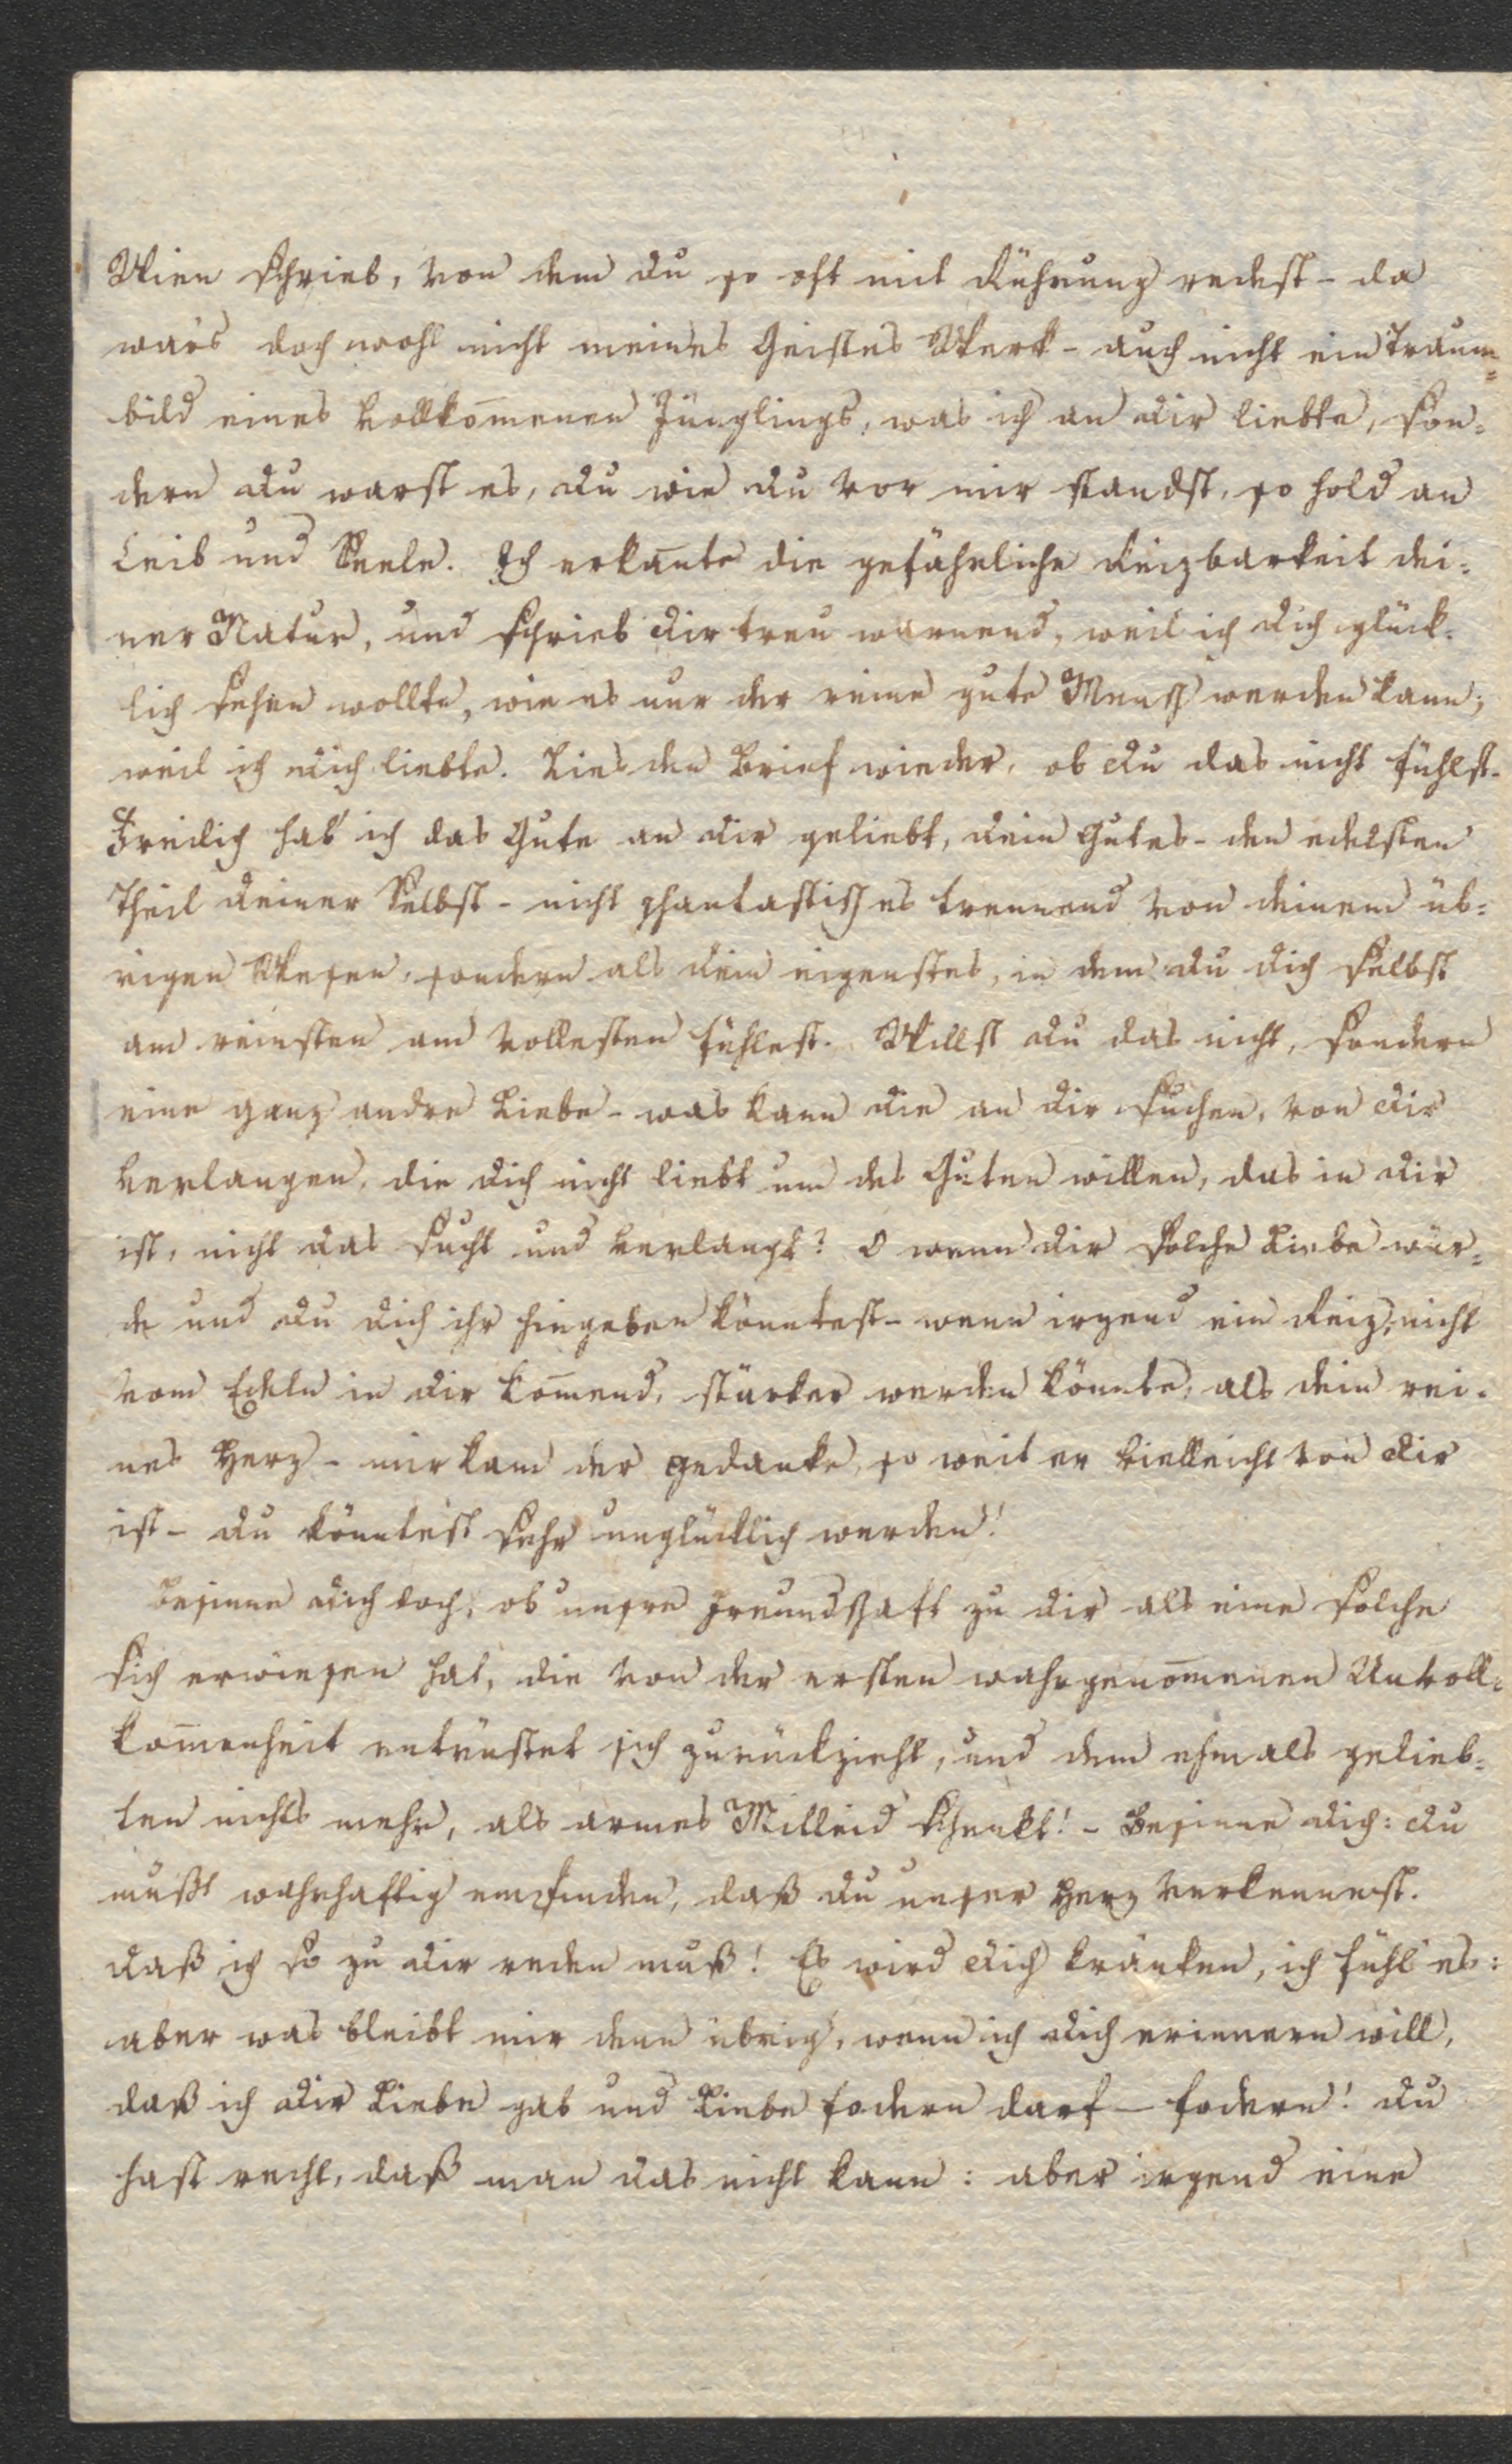 Wien schrieb, von dem du so oft mit Rührung redest – da
wars doch wohl nicht meines Geistes Werk – auch nicht ein Traum=
bild eines vollkom̅enen Jünglings, was ich an dir liebte, son=
dern du warst es, du wie du vor mir standst, so hold an
Leib und Seele. Ich erkan̅te die gefährliche Reizbarkeit dei=
ner Natur, und schrieb dir treu warnend, weil ich dich glück=
lich sehen wollte, wie es nur der reine gute Mensch werden kann;
weil ich dich liebte. Lies den Brief wieder, ob du das nicht fühlst.
Freilich hab' ich das Gute an dir geliebt, dein Gutes – den edelsten
Theil deiner Selbst – nicht phantastisch es trennend von deinem üb=
rigen Wesen, sondern als dein eigenstes, in dem du dich selbst
am reinsten am vollesten fühlest. Willst du das nicht, sondern
eine ganz andre Liebe – was kann die an dir suchen, von dir
verlangen, die dich nicht liebt um des Guten willen, das in dir
ist, nicht das sucht und verlangt? O wenn dir solche Liebe wür=
de und du dich ihr hingeben könntest – wenn irgend ein Reiz, nicht
vom Edeln in dir kom̅end, stärker werden könnte, als dein rei=
nes Herz – mir kam der Gedanke, so weit er vielleicht von dir
ist – du könntest sehr unglücklich werden!
Besinne dich doch, ob unsre Freundschaft zu dir als eine solche
sich erwiesen hat, die von der ersten wahrgenom̅enen Unvoll=
kom̅enheit entrüstet sich zurückzieht, und dem ehmals gelieb=
ten nichts mehr, als armes Mitleid schenkt! – Besinne dich: du
mußt wahrhaftig empfinden, daß du unser Herz verkennest.
daß ich so zu dir reden muß! Es wird dich kränken, ich fühl es:
aber was bleibt mir denn übrig, wenn ich dich erinnern will,
daß ich dir Liebe gab und Liebe fodern darf – fodern! du
hast recht, daß man das nicht kann: aber irgend eine